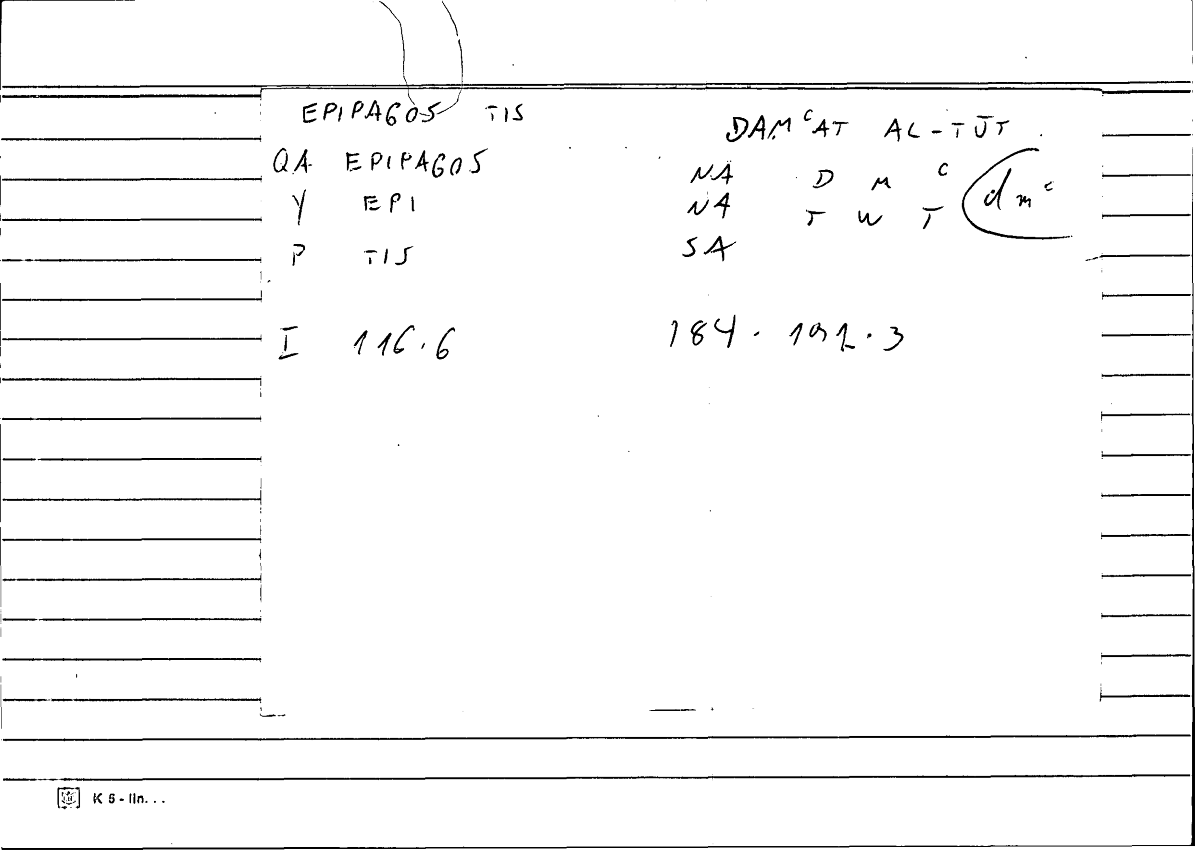 EPIPAGOS TIS DAMᶜAT AL-TŪT
QA EPIPAGOS NA D M C
Y EPI NA T W T dmᶜ
P TIS SA
I 116.6 184. 191.3
K 5 - lin...